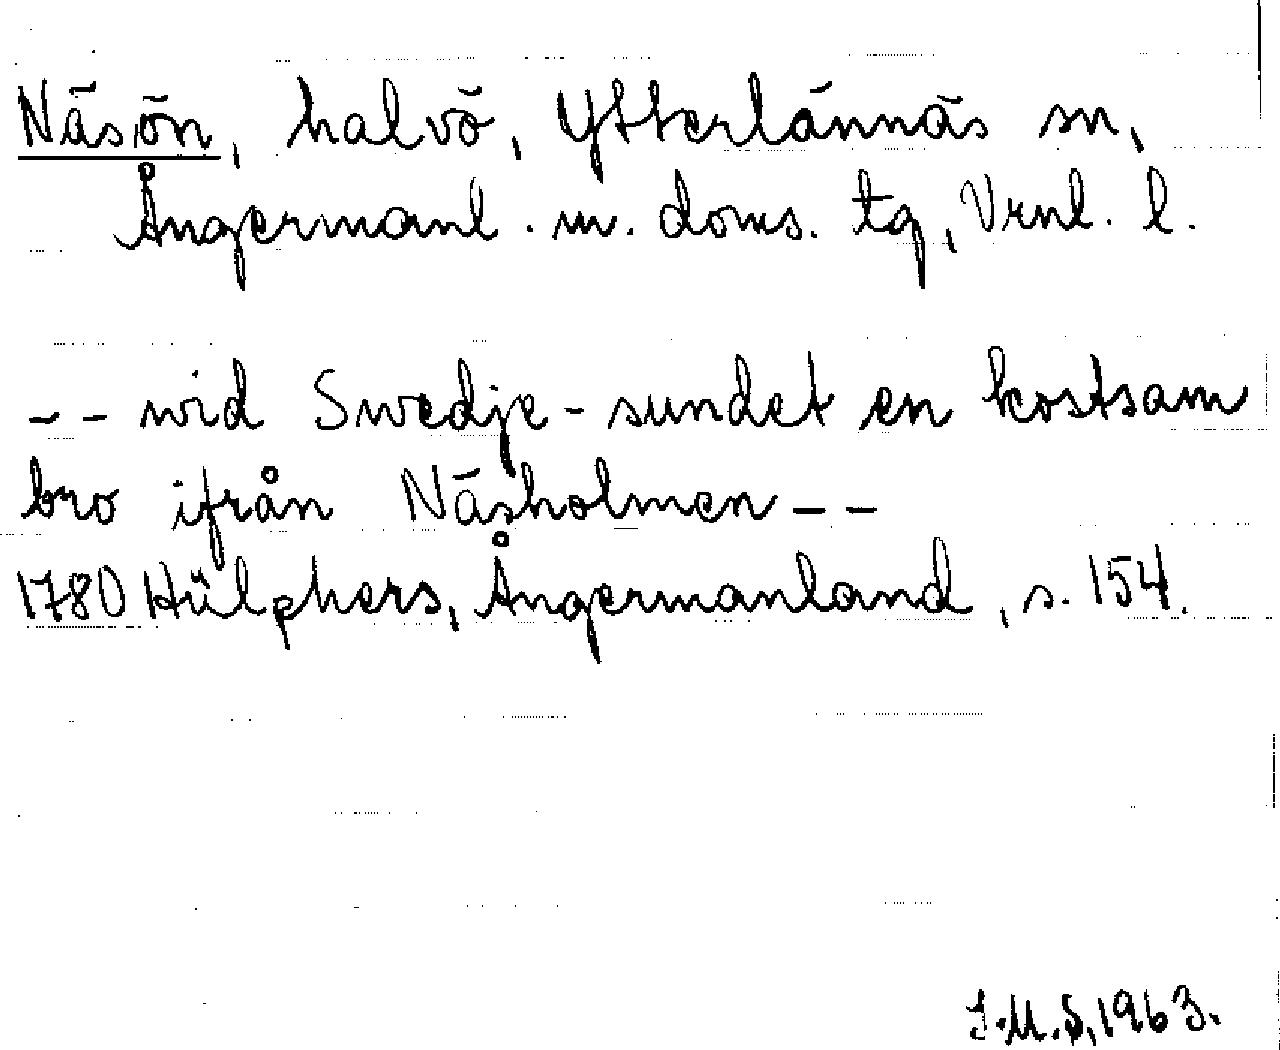 Näsön, halvö, Ytterlännäs sn,
Ångermanl. m. doms. tg, Vrnl. l.
-- wid Swedje-sundet en kostsam
bro ifrån Näsholmen --
1780 Hülphers, Ångermanland, s. 154.
I.M.S, 1963.